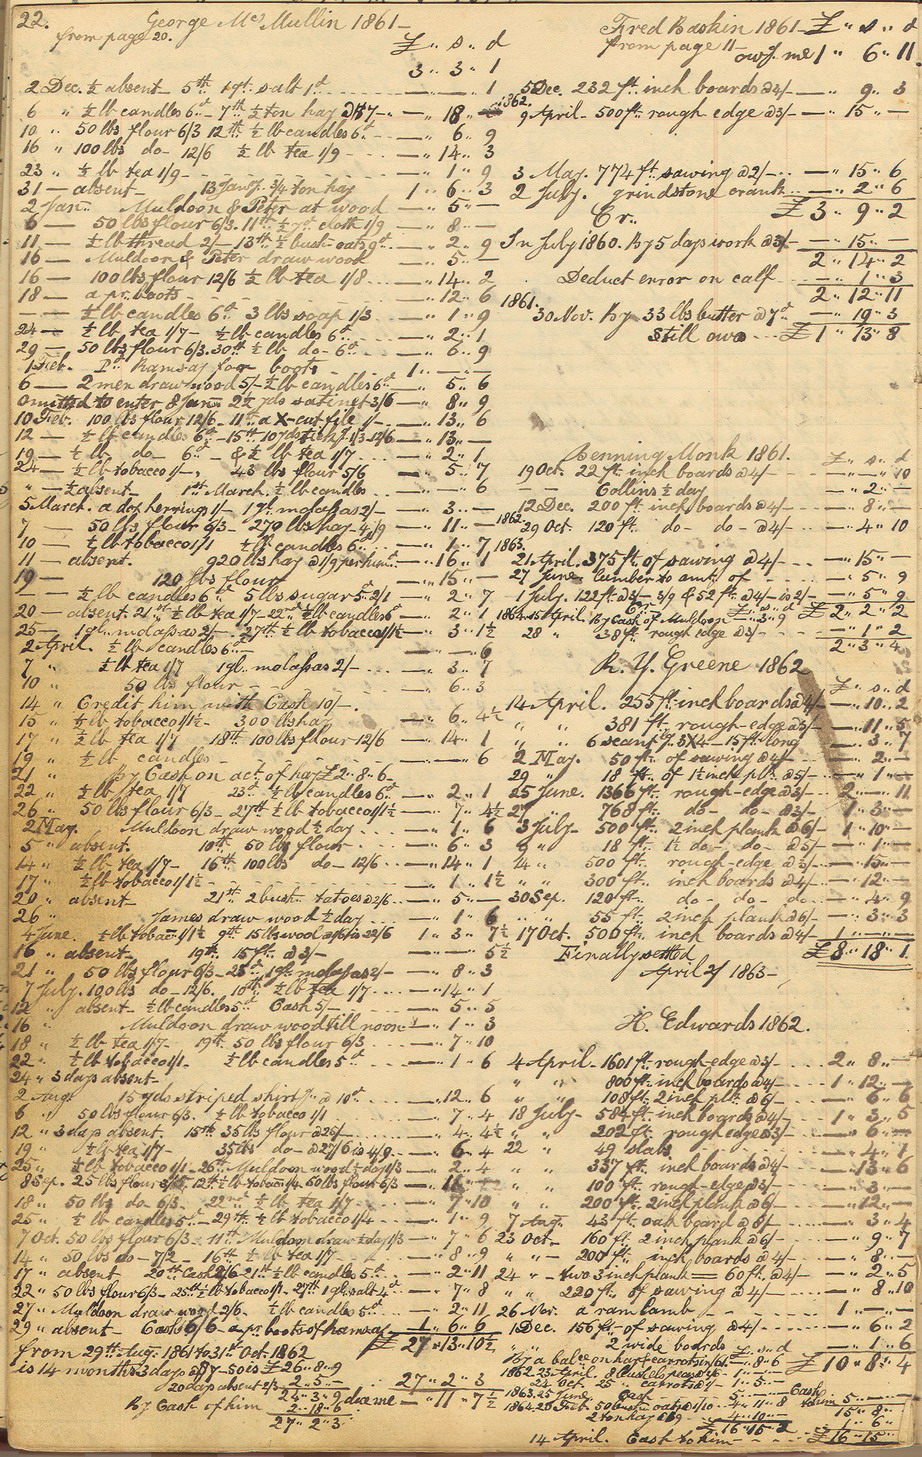 22. George McMullin 1861 —
from page 20.
£ " s " d
3 " 3 " 1
2 Dec. ½ absent 5th 1 qt. salt 1d — " — " 1
6 " ½ lb candles 6d 7th ½ ton hay — " 18 " —
10 " 50 lbs flour 6/3 12th ½ lb candles 6d — " 6 " 9
16 " 100 lbs do 12/6 ½ lb tea 1/9 — " 14 " 3
23 " ½ lb tea 1/9 — " 1 " 9
31 — absent 13 Jany. ¾ ton hay 1 " 6 " 3
2 Jan. Muldoon & Peter at wood — " 5 " —
6 — 50 lbs flour 6/3. 11th cloth 1/9 — " 8 " —
11 — ½ lb thread 2/- 13th ½ bush oats 9d — " 2 " 9
16 — Muldoon & Peter draw wood — " 5 " —
16 — 100 lbs flour 12/6 ½ lb tea 1/8 — " 14 " 2
18 — a pr. boots — " 12 " 6
— — ½ lb candles 6d 3 lbs soap 1/3 — " 1 " 9
24 — ½ lb tea 1/7 — ½ lb candles 6d — " 2 " 1
29 — 50 lbs flour 6/3. 30th ½ lb do 6d — " 6 " 9
1 Feb. Pd. Ramsay for boots 1 " — " —
6 — 2 men draw wood 5/- ½ lb candles 6d — " 5 " 6
omitted to enter 8 Jany 2½ yds satinet 3/6 — " 8 " 9
10 Feb. 100 lbs flour 12/6 11th a X-cut file 1/- — " 13 " 6
12 — ½ lb candles 6d — 15th 10 yds 12/6 — " 13 " —
19 — ½ lb do 6d — & ½ lb tea 1/7 — " 2 " 1
24 — ½ lb tobacco 1/-, 43 lbs flour 5/6 — " 5 " 7
" — ½ absent — 1st March. ½ lb candles — " — " 6
5 March. a doz herrings 1/- 1 gl. molasses 2/- — " 3 " —
7 — 50 lbs flour 6/3 — 270 lbs hay 4/9 — " 11 " —
10 — ½ lb tobacco 1/1 ½ lb candles 6d — " 1 " 7
11 — absent. 920 lbs hay @ 1/9 per hund — " 16 " 1
19 — 120 lbs flour — " 15 " —
— — ½ lb candles 6d 5 lbs sugar 5d 2/1 — " 2 " 7
20 — absent 21st ½ lb tea 1/7 22nd ½ lb candles 6d — " 2 " 1
25 — 1 gl. molasses 2/- 27th ½ lb tobacco 1/1½ — " 3 " 1½
2 April. ½ lb candles 6d — " — " 6
7 " ½ lb tea 1/7 1 gl. molasses 2/- — " 3 " 7
10 " 50 lbs flour — " 6 " 3
14 " Credit him with Cash 10/-.
15 " ½ lb tobacco 1/1½ — 300 lbs hay — " 6 " 4½
17 " ½ lb tea 1/7 18th 100 lbs flour 12/6 — " 14 " 1
19 " ½ lb candles — " — " 6
21 " By Cash on act. of hay £2 " 8 " 6
22 " ½ lb tea 1/7 23d ½ lb candles 6d — " 2 " 1
26 " 50 lbs flour 6/3 — 27th ½ lb tobacco 1/1½ — " 7 " 4½
2 May. Muldoon draw wood ½ day — " 1 " 6
5 " absent. 10th 50 lbs flour — " 6 " 3
14 " ½ lb tea 1/7 — 16th 100 lbs do — 12/6 — " 14 " 1
17 " ½ lb tobacco 1/1½ — " 1 " 1½
20 " absent 21st 2 bush. tatoes @ 2/6 — " 5 " —
26 " James draw wood ½ day — " 1 " 6
4 June. ½ lb tobacco 1/1½ 9th 15 lbs wool 22/6 1 " 3 " 7½
16 " absent — 19th 15 ft. @ 3/- — " — " 5½
21 " 50 lbs flour 6/3 — 23d 1 gl. molasses 2/- — " 8 " 3
7 July. 100 lbs do — 12/6. 10th ½ lb tea 1/7 — " 14 " 1
12 " absent — ½ lb candles 5d Cash 5/- — " 5 " 5
16 " Muldoon draw wood till noon — " 1 " 3
18 " ½ lb tea 1/7 — 19th 50 lbs flour 6/3 — " 7 " 10
22 " ½ lb tobacco 1/1 ½ lb candles 5d — " 1 " 6
24 " 3 days absent —
2 Augt 15 yds striped shirtg. @ 10d — " 12 " 6
6 " 50 lbs flour 6/3. ½ lb tobacco 1/1 — " 7 " 4
12 " 3 days absent. 15th 35 lbs flour — " 4 " 4½
19 " ½ lb tea 1/7 — 35 lbs do — 4/9 — " 6 " 4
25 " ½ lb tobacco 1/1 — 26th Muldoon wood ½ day 1/3 — " 2 " 4
8 Sep. 25 lbs flour 12th ½ lb tobac. 50 lbs flour 6/3 — " —
18 " 50 lbs do 6/3 — 22nd ½ lb tea 1/7 — " 7 " 10
25 " ½ lb candles 5d — 29th ½ lb tobacco 1/4 — " 1 " 9
7 Oct. 50 lbs flour 6/3 — 11th Muldoon draw ½ day 1/3 — " 7 " 6
14 " 50 lbs do — 7/2 — 16th ½ lb tea 1/7 — " 8 " 9
17 " absent 20th Cash 2/6 — 21st ½ lb candles 5d — " 2 " 11
22 " 50 lbs flour 6/3 — 25th ½ lb tobacco 1/1 — 27th 1 qt. salt 4d — " 7 " 8
27 " Muldoon draw wood 2/6. ½ lb candles 5d — " 2 " 11
29 " absent — Cash 6/6 — a pr. boots of Ramsay 1 " 6 " 6
£ 27 " 13 " 10½
from 29th Aug. 1861 to 31st Oct. 1862
is 14 months 3 days @ 37 — 50 is £26 " 8 " 9
20 days absent 2/3 2 " 5 " —
24 " 3 " 9 due me — " 11 " 7½
By Cash of him 2 " 18 " 6
27 " 2 " 3
27 " 2 " 3
Fred Baskin 1861 — £ " s " d
from page 11 — owg. me 1 " 6 " 11
5 Dec. 232 ft. inch boards @ 4/- — " 9 " 3
1862.
9 April — 500 ft. rough edge @ 3/- — " 15 " —
3 May. 774 ft. sawing @ 2/- — " 15 " 6
2 July. grindstone crank — " 2 " 6
£ 3 " 9 " 2
Cr.
In July 1860. By 5 days work @ 3/- — " 15 " —
2 " 14 " 2
Deduct error on calf — " 1 " 3
2 " 12 " 11
1861.
30 Nov. By 33 lbs butter @ 7d — " 19 " 3
Still owes £ 1 " 13 " 8
Benning Monk 1861. £ " s " d
19 Oct. 22 ft. inch boards @ 4/- — " — " 10
Collins ½ day — " 2 " —
12 Dec. 200 ft. inch boards @ 4/- — " 8 " —
1862
29 Oct. 120 ft. do — do — @ 4/- — " 4 " 10
1863.
21 April. 375 ft. of sawing @ 4/- — " 15 " —
27 June lumber to amt. of — " 5 " 9
1 July. 122 ft. @ 3/- 3/9 & 52 ft. @ 4/- is 2/- — " 5 " 9
Cr. £ 2 " 2 " 2
1864. 15 April. By Cash of Muldoon
28 " 38 ft. rough edge @ 3/- — " 1 " 2
2 " 3 " 4
R. Y. Greene 1862
£ " s " d
14 April. 255 ft. inch boards @ 4/- — " 10 " 2
" " 381 ft. rough-edge @ 3/- — " 11 " 5
" " 6 scantlg. 3X4 — 15 ft. long — " 3 " 7
2 May. 50 ft. of sawing @ 4/- — " 2 " —
29 " 18 ft. of 1½ inch plk. @ 5/- — " 1 " —
25 June. 1366 ft. rough-edge @ 3/- 2 " — " 11
27 " 768 ft. do — do — @ 3/- 1 " 3 " —
3 July — 500 ft. 2 inch plank @ 6/- 1 " 10 " —
" " 18 ft. 1½ do — do — @ 5/- — " 1 " —
14 " 500 ft. rough-edge @ 3/- — " 15 " —
" " 300 ft. inch boards @ 4/- — " 12 " —
30 Sep. 120 ft. do — do — do — " 4 " 9
" " 55 ft. 2 inch plank @ 6/- — " 3 " 3
17 Oct. 500 ft. inch boards @ 4/- 1 " — " —
Finally settled £ 8 " 18 " 1
April 21 1863 —
H. Edwards 1862.
4 April — 1601 ft. rough-edge @ 3/- 2 " 8 " —
" " 800 ft. inch boards @ 4/- 1 " 12 " —
" " 108 ft. 2 inch plk. @ 6/- — " 6 " 6
18 July — 584 ft. inch boards @ 4/- 1 " 3 " 5
" " 202 ft. rough edge @ 3/- — " 6 " —
22 " 49 slabs — " 4 " 1
" " 337 ft. inch boards @ 4/- — " 13 " 6
" " 100 ft. rough-edge @ 3/- — " 3 " —
" " 200 ft. 2 inch plank @ 6/- — " 12 " —
7 Aug. 43 ft. oak board @ 8/- — " 3 " 4
23 Oct — 160 ft. 2 inch plank @ 6/- — " 9 " 7
" " 200 ft. inch boards @ 4/- — " 8 " —
24 " — two 3 inch plank = 60 ft. @ 4/- — " 2 " 5
" " 220 ft. of sawing @ 4/- — " 8 " 10
26 Nov. a ram lamb 1 " — " —
1 Dec. 156 ft. of sawing @ 4/- — " 6 " 2
" " 2 wide boards — " 1 " 6
£ 10 " 8 " 4
By a balce on hay & carrots in 61 — " 8 " 6
1862. 25 April. 8 bush. peas
24 Oct. 25 " carrots 1 " 5 " —
1863. 25 June. Cash 5 " — " —
1864. 20 Feb. 50 bush. oats @ 1/10 4 " 11 " 8
2 ton hay 4 " 10 " —
£ 16 " 15 " 2
Cash to him 5 " — " —
15 " 8 " —
1 " 6 " —
14 April. Cash to him
£ 16 " 15 " —